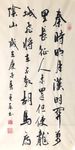 秦時明月漢時關萬
里長征人未還但使龍
城飛將在不教胡馬度
陰山